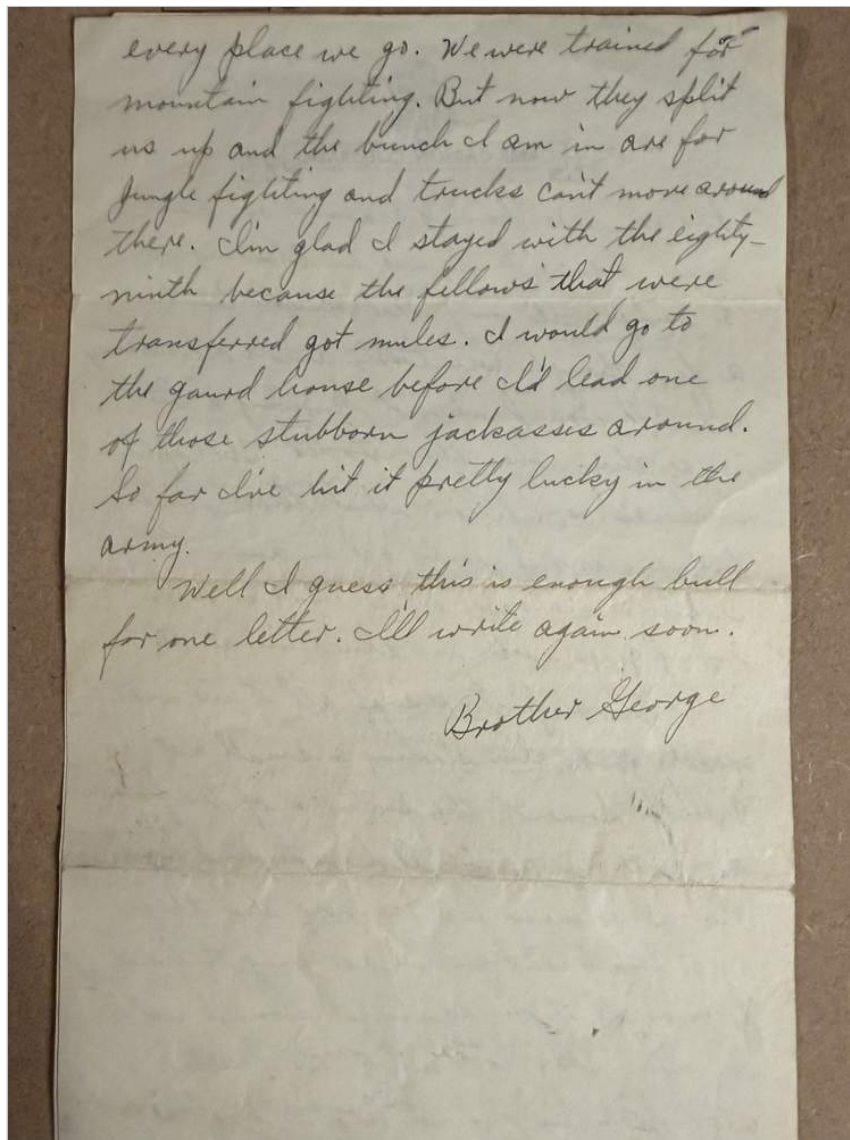 every place we go. We were trained for
mountain fighting. But now they split
us up and the bunch I am in are for
jungle fighting and trucks can't move around
there. I'm glad I stayed with the eighty-
ninth because the fellows that were
transferred got mules. I would go to
the gaurd house before I'd lead one
of those stubborn jackasses around.
So far I've hit it pretty lucky in the
army.
Well I guess this is enough bull
for one letter. I'll write again soon.
Brother George